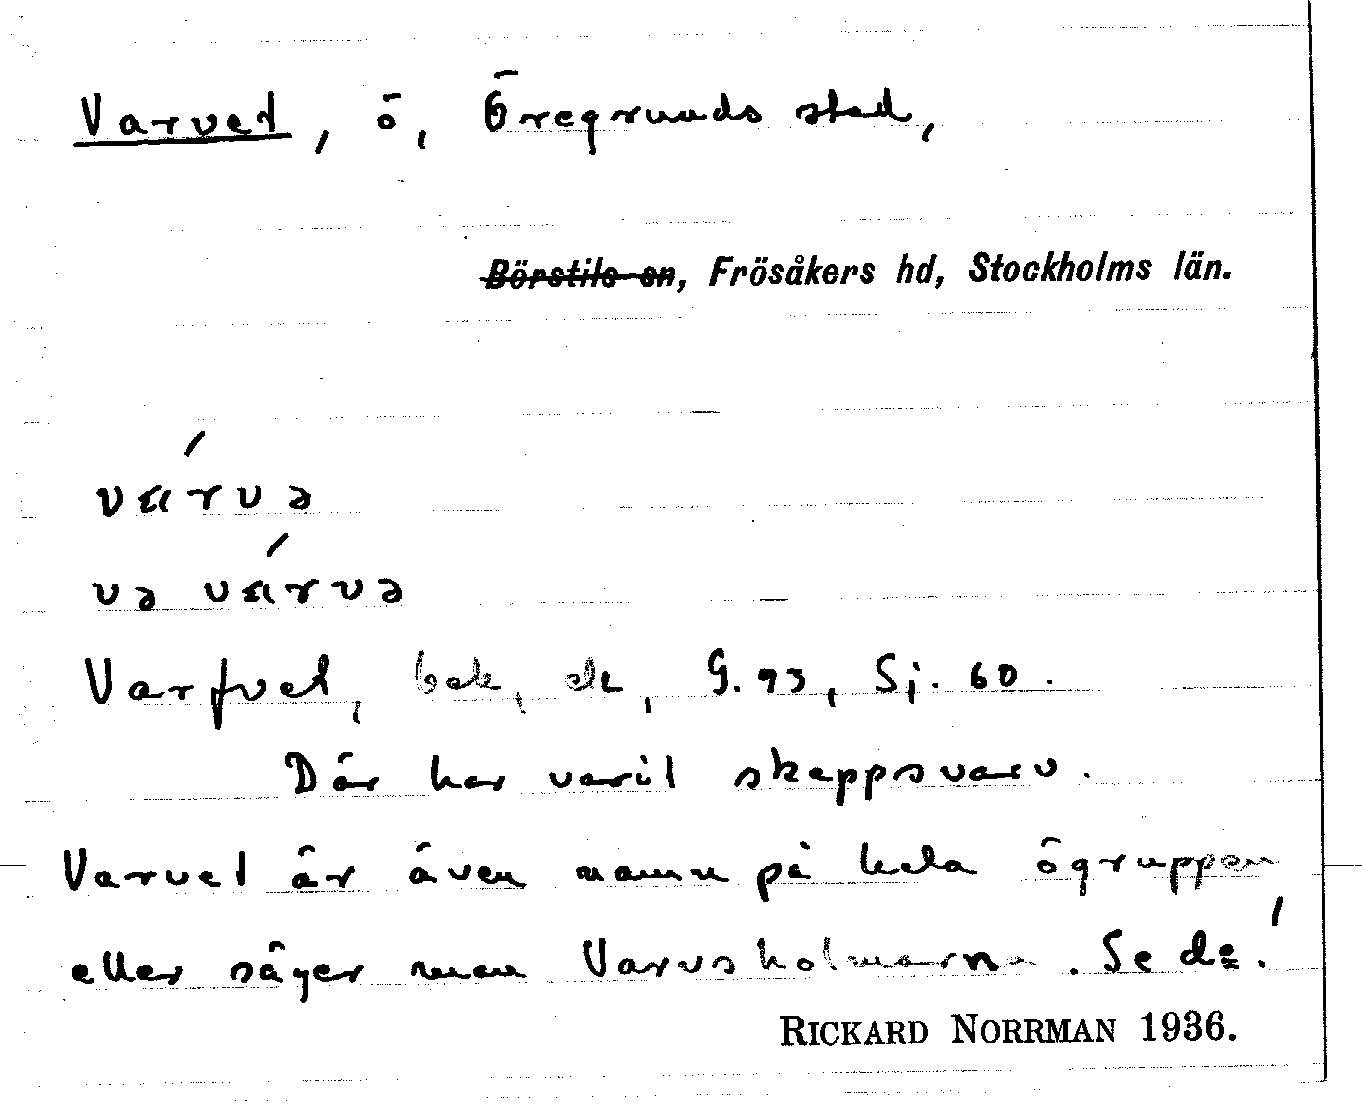 Varvet, ö, Öregrunds stad,
Börstils sn, Frösåkers hd, Stockholms län.
várvə
və várvə
Varfvet, bek, ek, G. 93, Sj. 60.
Där har varit skeppsvarv.
Varvet är även namn på hela ögruppen
eller säger man Varvsholmarna. Se d:o!
RICKARD NORRMAN 1936.